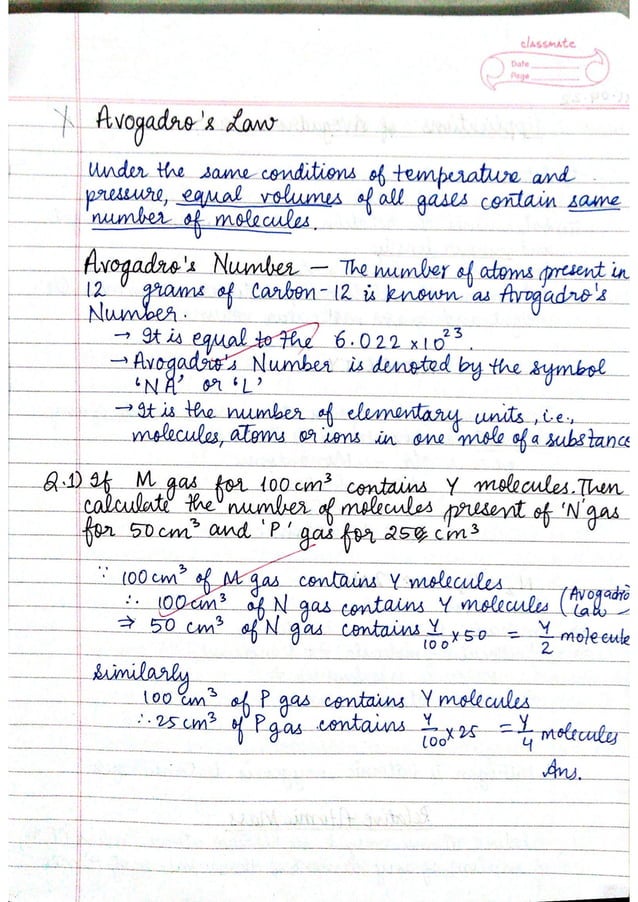 classmate
Date
Page
Avogadro's Law
Under the same conditions of temperature and
pressure, equal volumes of all gases contain same
number of molecules.
Avogadro's Number — The number of atoms present in
12 grams of Carbon-12 is known as Avogadro's
Number.
→ It is equal to the 6.022 × 10²³.
→ Avogadro's Number is denoted by the symbol
'NA' or 'L'
→ It is the number of elementary units, i.e.,
molecules, atoms or ions in one mole of a substance
Q.1) If M gas for 100 cm³ contains Y molecules. Then
calculate the number of molecules present of 'N' gas
for 50 cm³ and 'P' gas for 25 cm³
∵ 100 cm³ of M gas contains Y molecules
∴ 100 cm³ of N gas contains Y molecules (Avogadro
Law –
⇒ 50 cm³ of N gas contains Y/100 × 50 = Y/2 molecule
Similarly
100 cm³ of P gas contains Y molecules
∴ 25 cm³ of P gas contains Y/100 × 25 = Y/4 molecules
Ans.